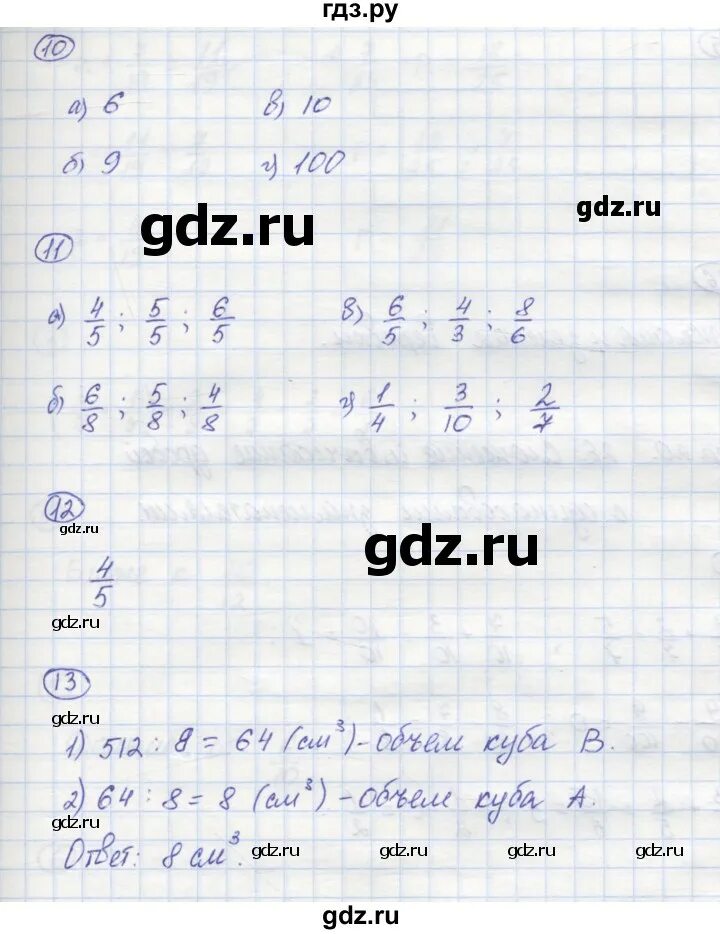 гдз.ру
10
а) 6 в) 10
б) 9 г) 100
gdz.ru gdz.ru
11
а) 4/5 ; 5/5 ; 6/5 в) 6/5 ; 4/3 ; 8/6
б) 6/8 ; 5/8 ; 4/8 г) 1/4 ; 3/10 ; 2/7
12
gdz.ru
4/5
gdz.ru gdz.ru
13
gdz.ru
1) 512 : 8 = 64 (см³) – объем куба В.
2) 64 : 8 = 8 (см³) – объем куба А.
gdz.ru
Ответ: 8 см³.
gdz.ru gdz.ru gdz.ru
gdz.ru